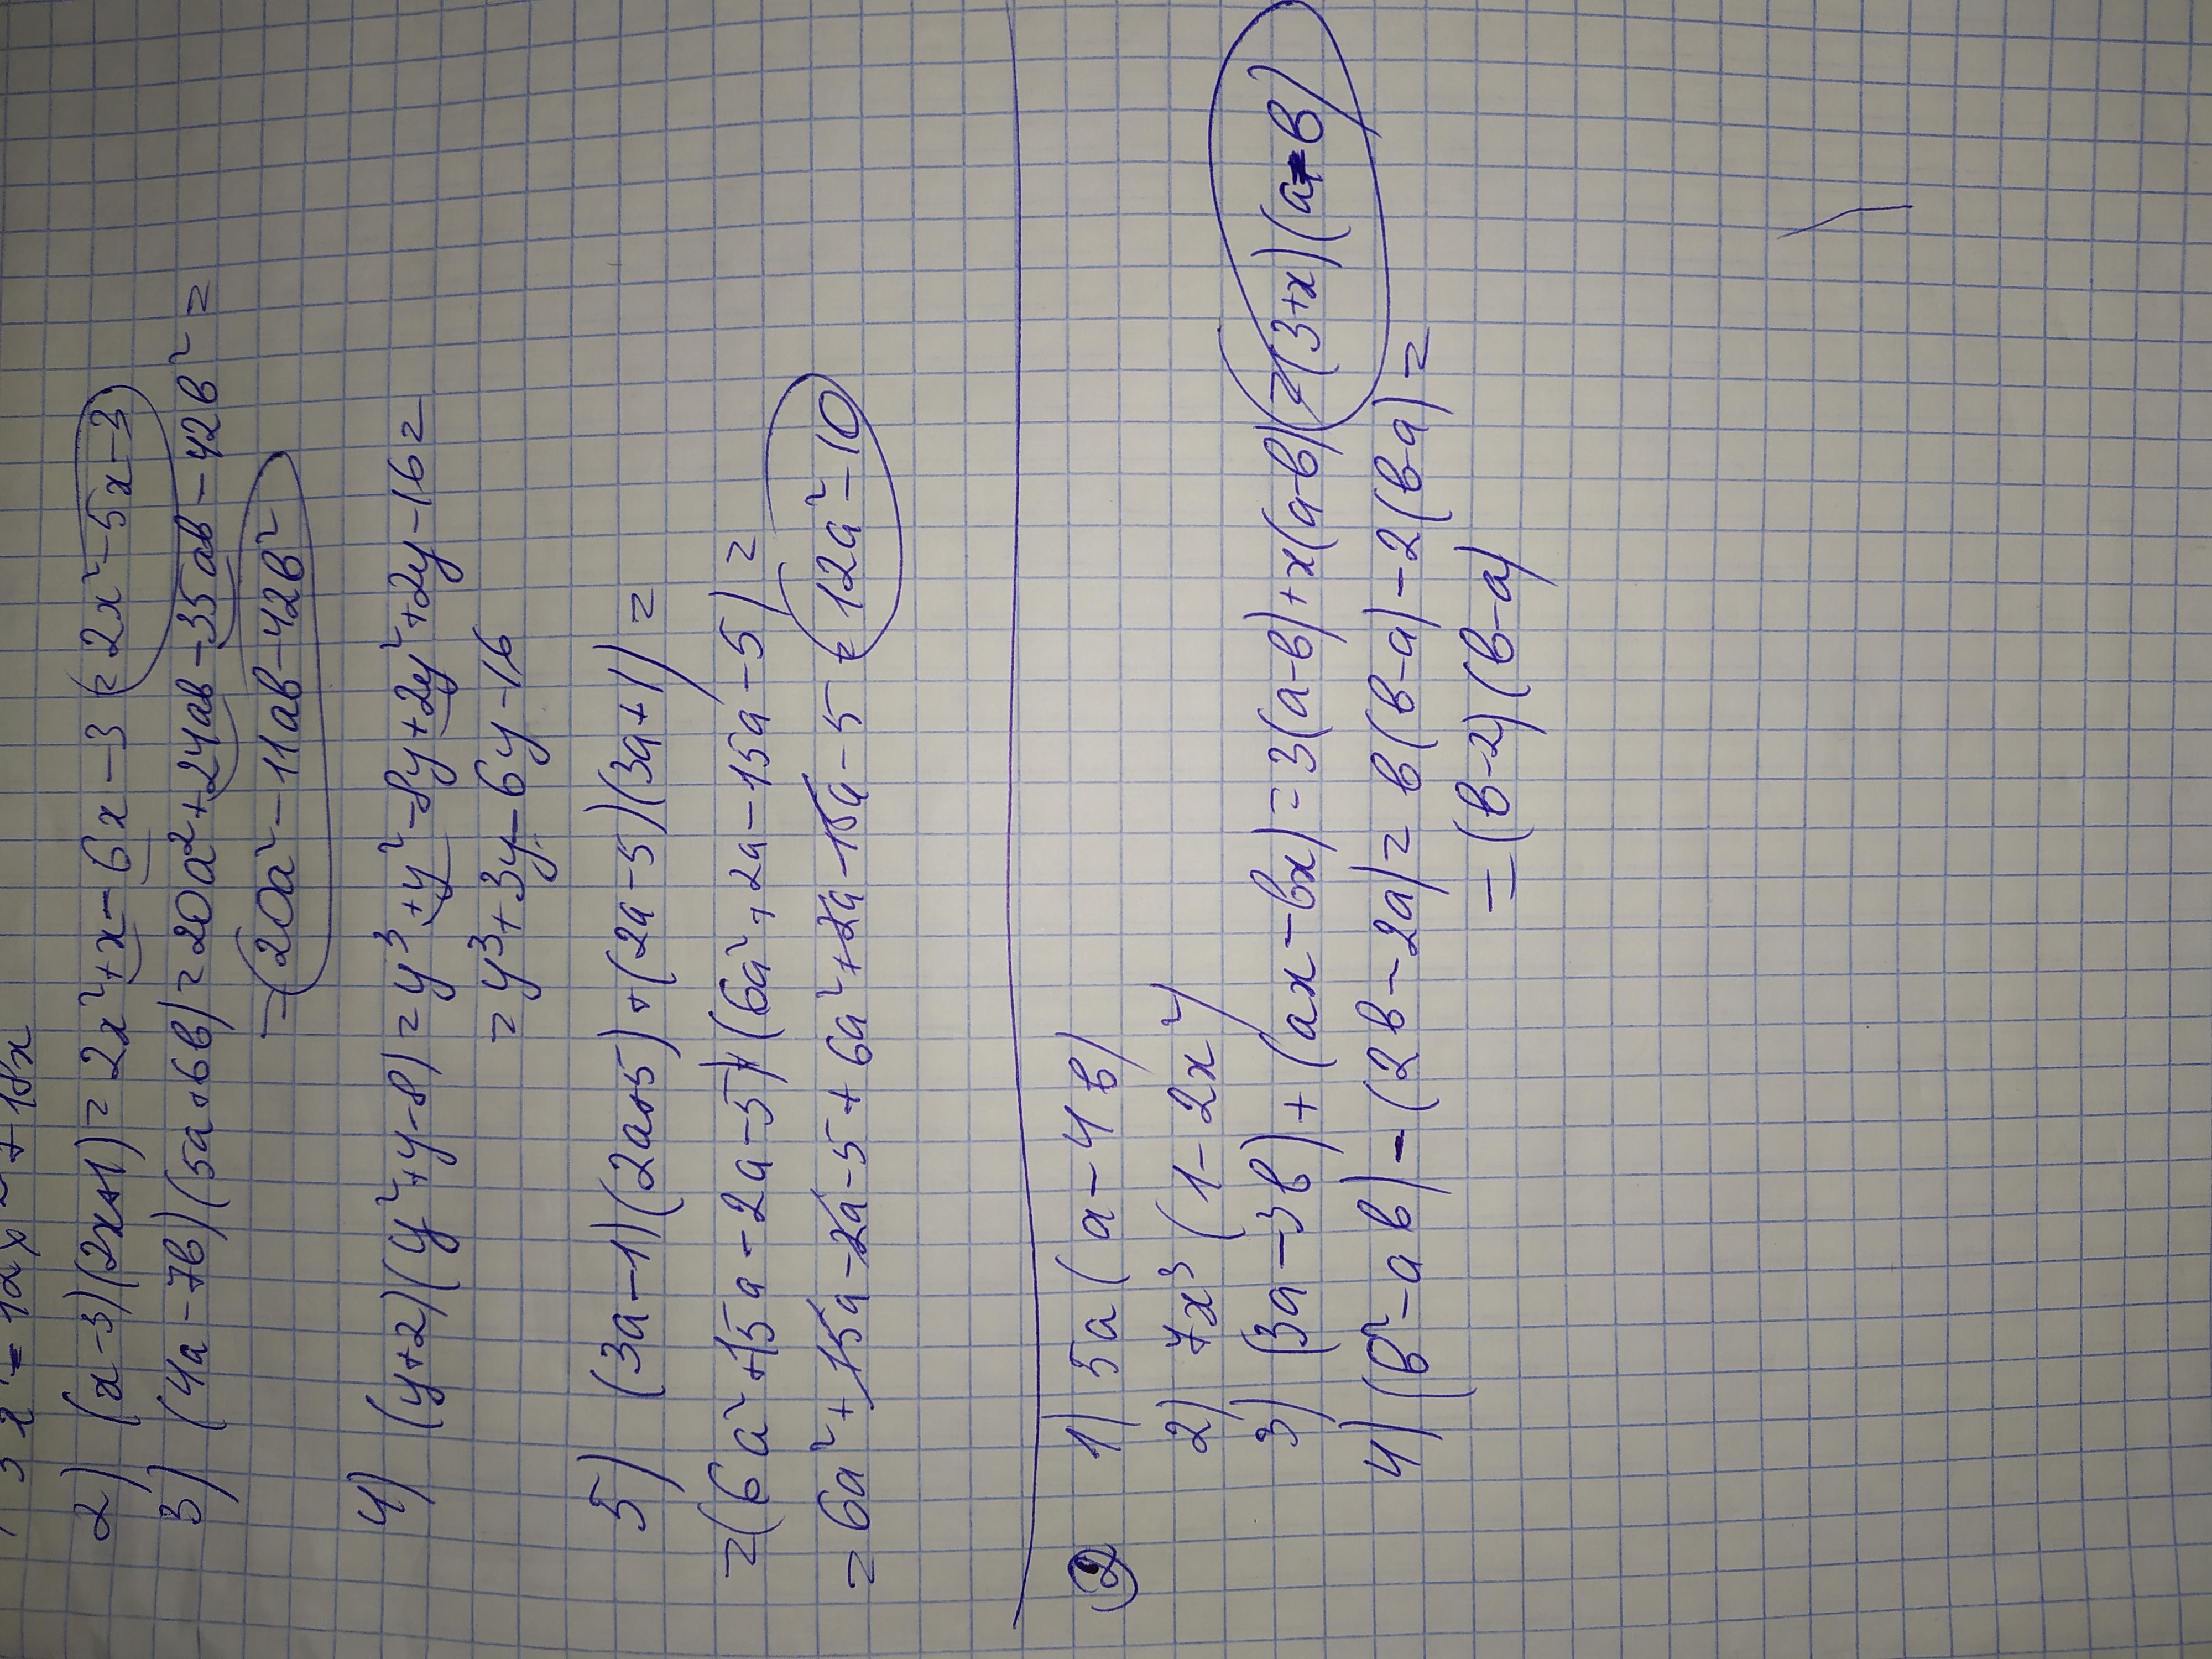 2) (x-3)(2x+1) = 2x²+x-6x-3 = 2x²-5x-3
3) (4a-7в)(5a+6в) = 20a²+24aв-35aв-42в² =
= 20a²-11aв-42в²
4) (y+2)(y²+y-8) = y³+y²-8y+2y²+2y-16=
= y³+3y-6y-16
5) (3a-1)(2a+5)+(2a-5)(3a+1) =
=(6a²+15a-2a-5)+(6a²+2a-15a-5) =
= 6a²+15a-2a-5+6a²+2a-15a-5 = 12a²-10
② 1) 5a(a-4в)
2) 7x³(1-2x²)
3) (3a-3в)+(ax-вx)=3(a-в)+x(a-в)=(3+x)(a-в)
4) (в²-aв)-(2в-2a)=в(в-a)-2(в-a)=
=(в-2)(в-a)